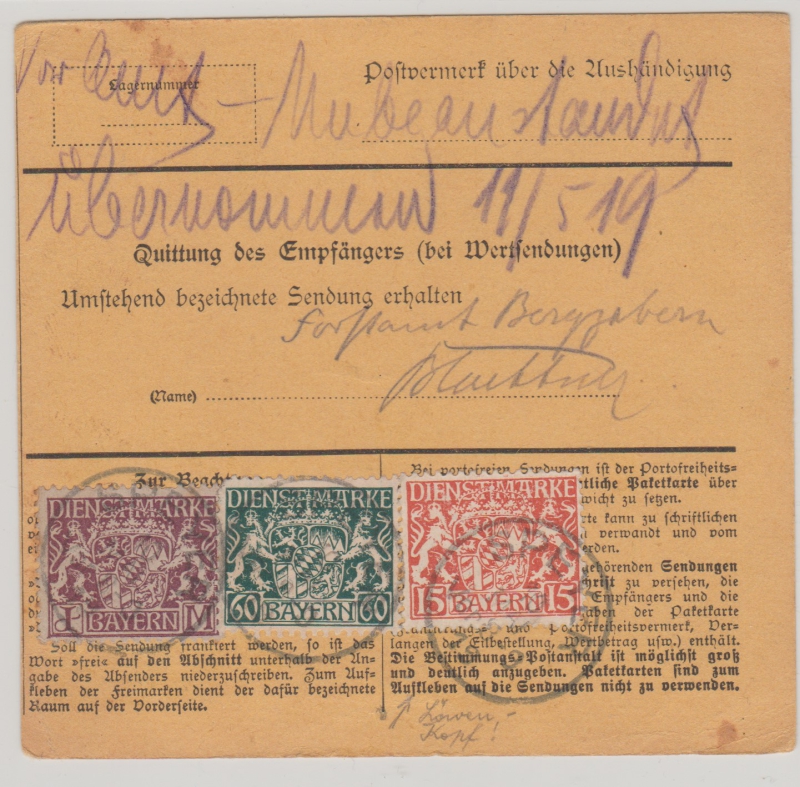 vor Amt - Unbeanstandet
Lagernummer
Postvermerk über die Aushändigung
übernommen 11/5 19.
Quittung des Empfängers (bei Wertsendungen)
Umstehend bezeichnete Sendung erhalten
Forstamt Bergzabern
(Name)
Zur Beacht
DIENSTMARKE
1 BAYERN M
DIENSTMARKE
60 BAYERN 60
DIENSTMARKE
15 BAYERN 15
Soll die Sendung frankiert werden, so ist das
Wort »frei« auf den Abschnitt unterhalb der An-
gabe des Absenders niederzuschreiben. Zum Auf-
kleben der Freimarken dient der dafür bezeichnete
Raum auf der Vorderseite.
Bei portofreien Sendungen ist der Portofreiheits-
tliche Paketkarte über
wicht zu setzen.
rte kann zu schriftlichen
verwandt und vom
erden.
gehörenden Sendungen
hrift zu versehen, die
Empfängers und die
aben der Paketkarte
und Portofreiheitsvermerk, Ver-
langen der Eilbestellung, Wertbetrag usw.) enthält.
Die Bestimmungs-Postanstalt ist möglichst groß
und deutlich anzugeben. Paketkarten sind zum
Aufkleben auf die Sendungen nicht zu verwenden.
Löwen-
Kopf!